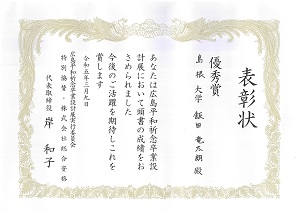 表彰状
優秀賞
島根大学 飯田 竜太朗 殿
あなたは広島平和祈念卒業設
計展において頭書の成績をお
さめられました
今後のご活躍を期待しこれを
賞します
令和五年三月 日
広島平和祈念卒業設計展実行委員会
特別協賛・株式会社総合資格
代表取締役 岸 和子